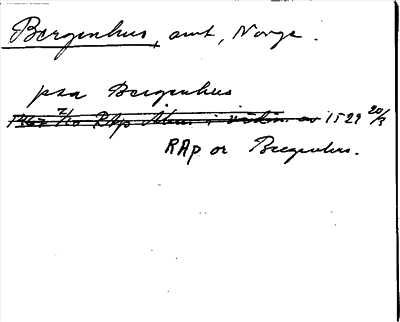 Bergenhus, amt, Norge.
på Bergenhus
1567 7/10 RAp 1529 20/3
RAp or Bergenhus.